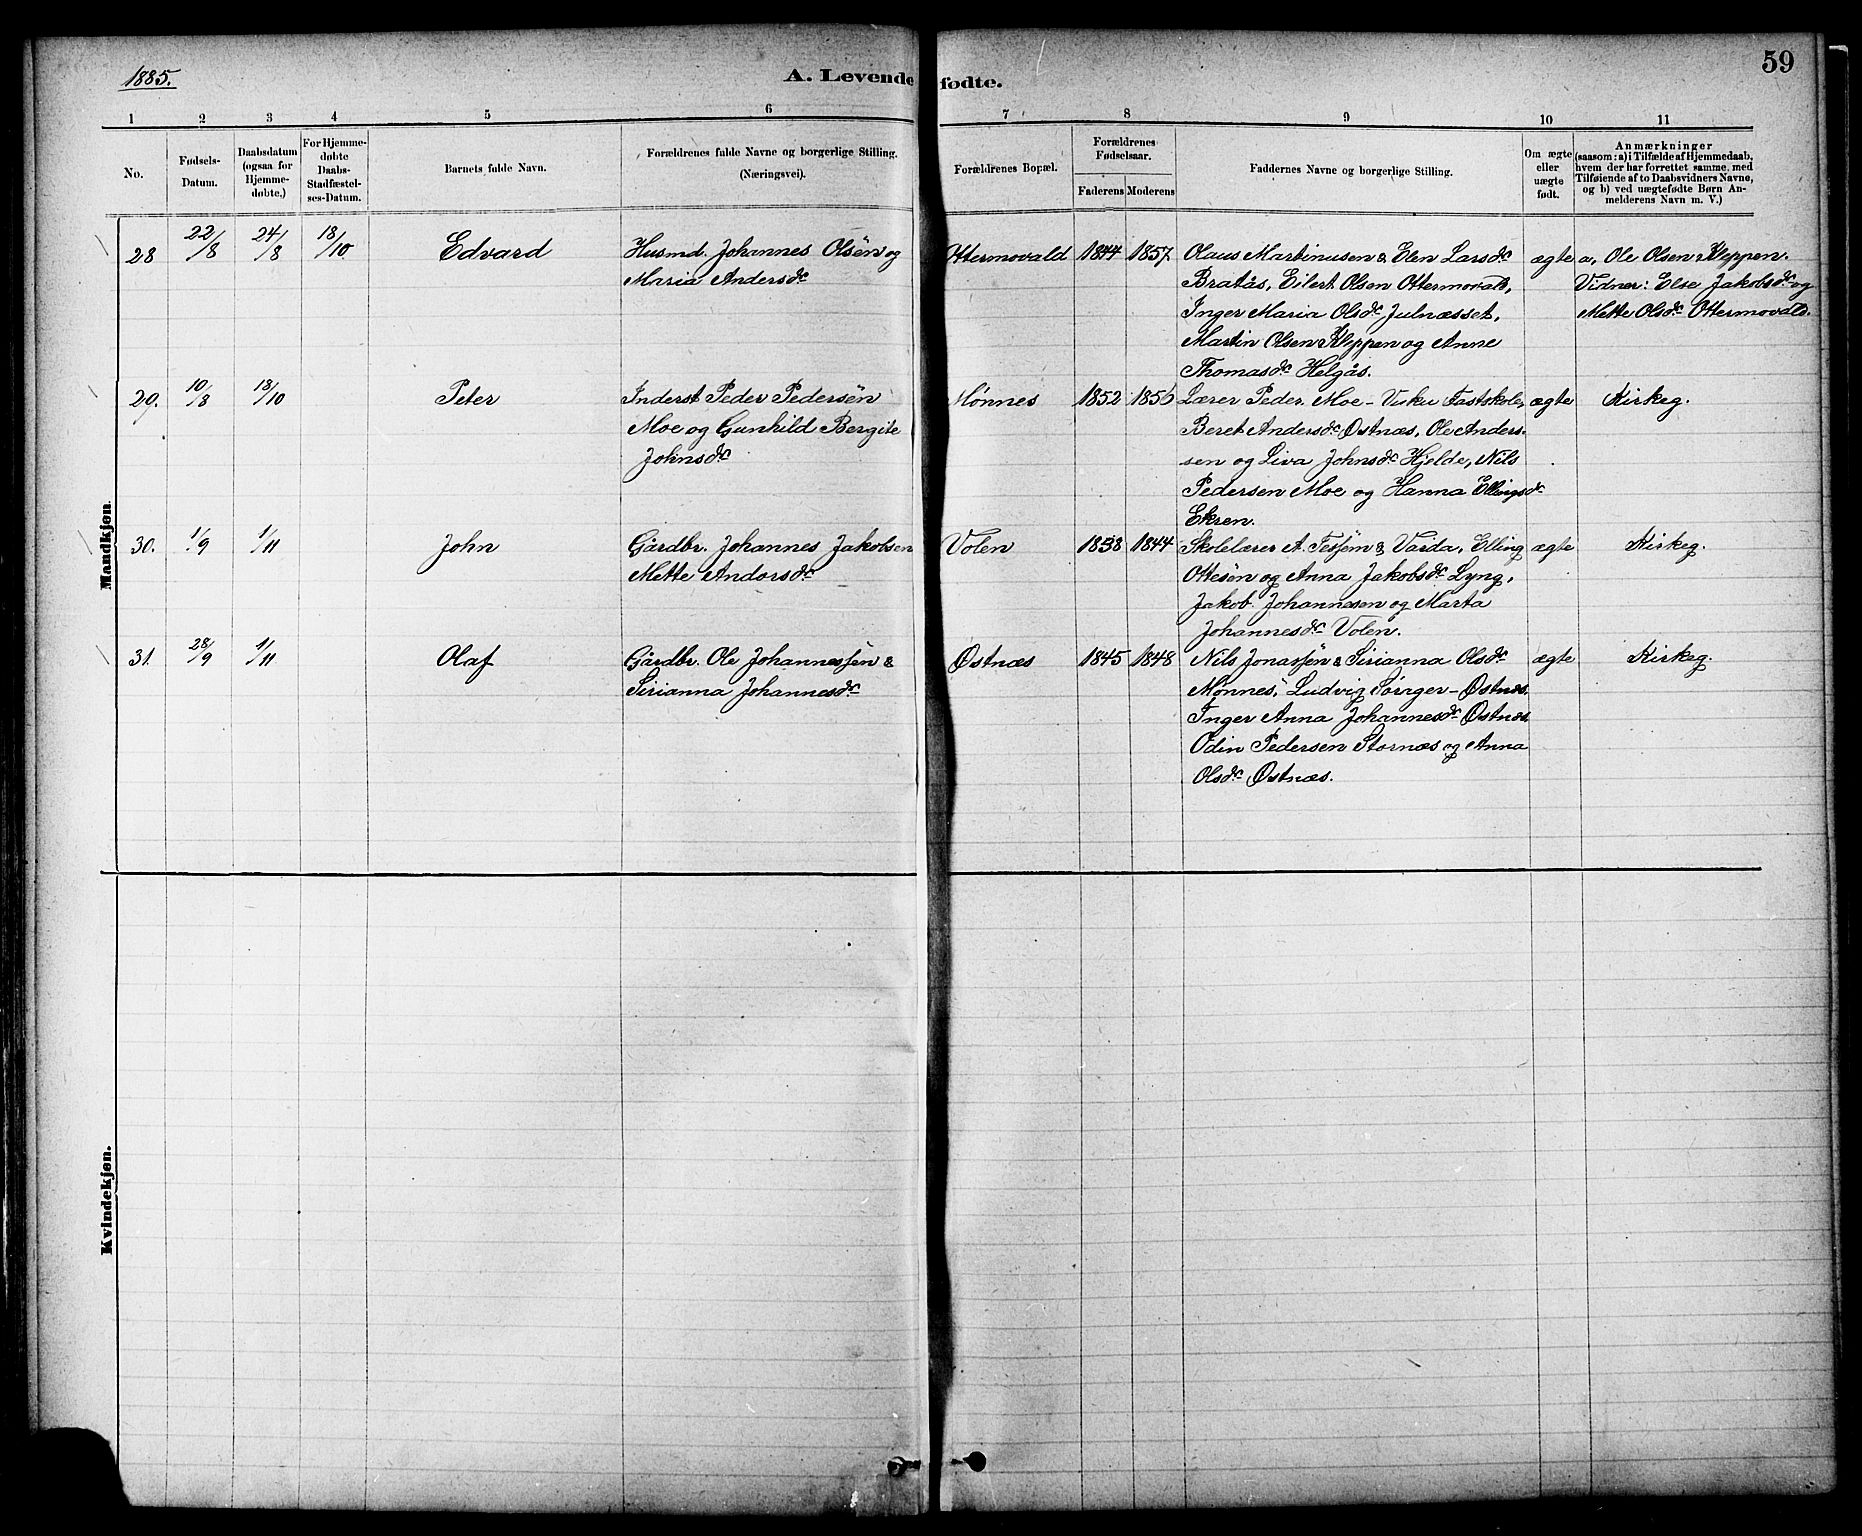 59
1885.
A. Levende fødte.
1 2 3 4 5 6 7 8 9 10 11
No.
Fødsels-
Datum.
Daabsdatum
(ogsaa for
Hjemme-
døbte.)
For Hjemme-
døbte
Daabs-
Stadfæstel-
ses-Datum.
Barnets fulde Navn.
Forældrenes fulde Navne og borgerlige Stilling.
(Næringsvei).
Forældrenes Bopæl.
Forældrenes
Fødselsaar.
Faderens Moderens
Faddernes Navne og borgerlige Stilling.
Om ægte
eller
uægte
født.
Anmærkninger
(saasom: a) i Tilfælde af Hjemmedaab,
hvem der har forrettet samme, med
Tilføiende af to Daabsvidners Navne,
og b) ved uægtefødte Børn An-
melderens Navn m. V.)
Mandkjøn.
28 22/8 24/8 18/10 Edvard
Husmd. Johannes Olsen og
Maria Andersdr
Ottermovald 1844 1857.
Olaus Martinusen & Elen Larsdr
Bratås, Eilert Olsen Ottermovald,
Inger Maria Olsdr Julnæsset,
Martin Olsen Kleppen og Anne
Thomasdr Helgås.
ægte
a, Ole Olsen Kleppen.
Vidner: Else Jakobsdr og
Mette Olsdr Ottermovald.
29. 10/8 18/10 Peter
Inderst Peder Pedersen
Moe og Gunhild Bergite
Johnsdr
Mønnes 1852 1856
Lærer Peder Moe - Visku Fastskole,
Beret Andersdr Østnæs, Ole Anders-
sen og Liva Johnsdr Hjelde, Nils
Pedersen Moe og Hanna Ellingsdr
Ekren.
ægte
Kirkeg.
30. 1/9 1/11 John
Gårdbr. Johannes Jakobsen
Mette Andersdr
Volen 1838 1844
Skolelærer A. Tessem & Varda, Elling
Ottesen og Anna Jakobsdr Lyng,
Jakob Johannesen og Marta
Johannesdr Volen.
ægte
Kirkeg.
31. 28/9 1/11 Olaf
Gårdbr. Ole Johannessen &
Sirianna Johannesdr
Østnæs 1845 1848
Nils Jonassen & Sirianna Olsdr
Mønnes, Ludvig Sørnger - Østnæs.
Inger Anna Johannesdr Østnæs
Odin Pedersen Stornæs og Anna
Olsdr Østnæs.
ægte
Kirkeg.
Kvindekjøn.